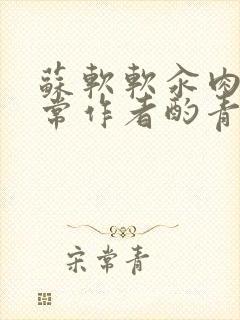 蘇軟軟汆肉
常作者酌青
宋常青